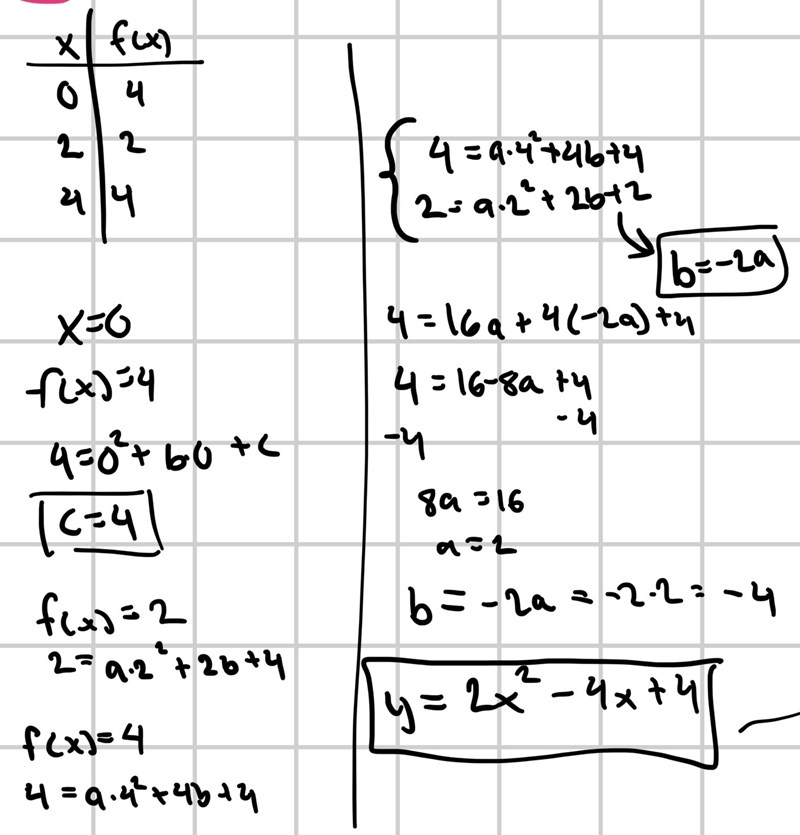 x f(x)
0 4
2 2
4 4
x=0
f(x)=4
4=0²+b0+c
c=4
f(x)=2
2=a·2²+2b+4
f(x)=4
4=a·4²+4b+4
4=a·4²+4b+4
2=a·2²+2b+2
b=-2a
4=16a+4(-2a)+4
4=16-8a+4
-4 -4
8a=16
a=2
b=-2a=-2·2=-4
y=2x²-4x+4